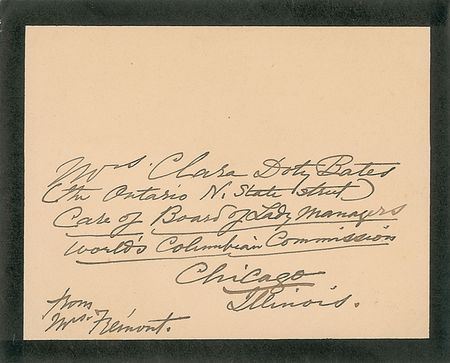 Mrs. Clara Doty Bates
(The Ontario N. State Street)
Care of Board of Lady Managers
World's Columbian Commission
Chicago
Illinois.
from
Mrs. Frémont.